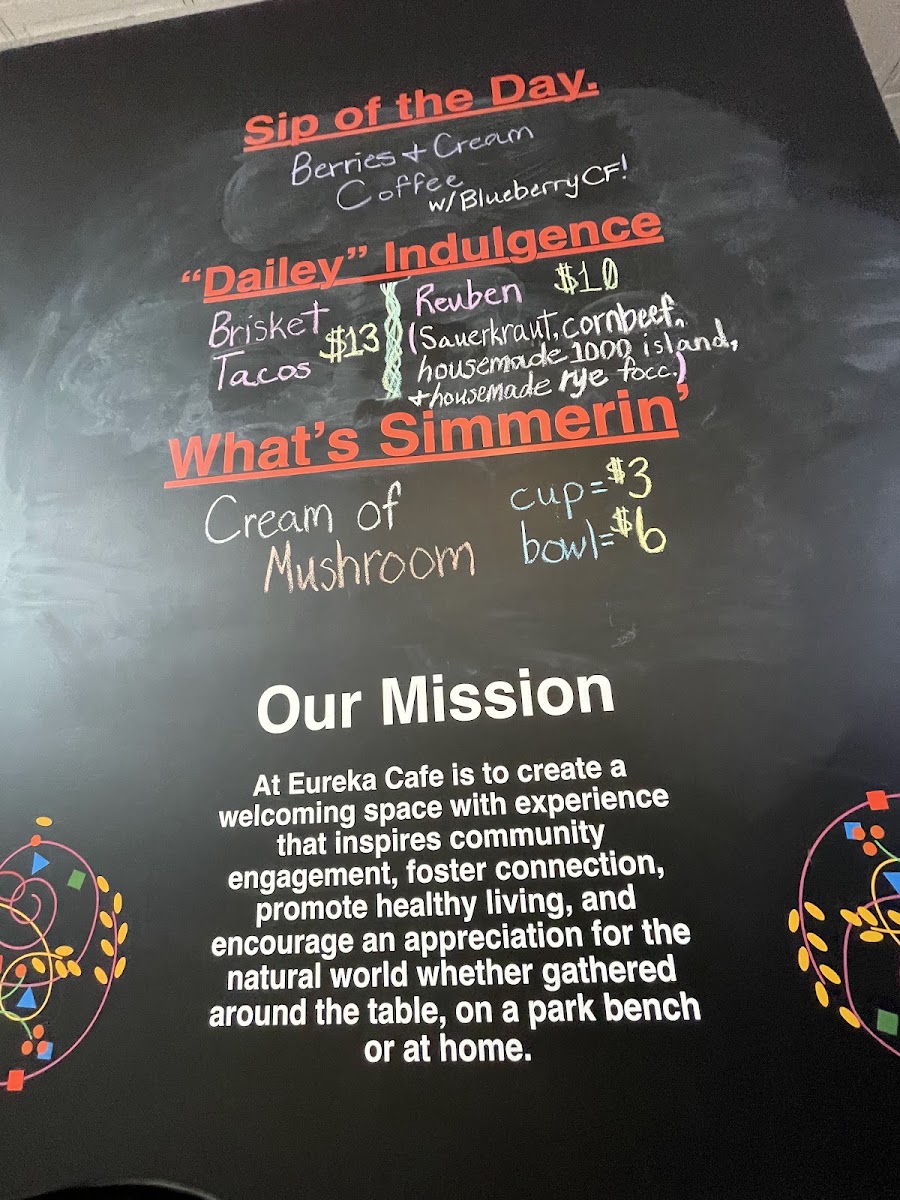 Sip of the Day.
Berries + Cream
Coffee
w/Blueberry CF!
"Dailey" Indulgence
Brisket
Tacos $13
Reuben $10
(Sauerkraut, cornbeef,
housemade 1000 island,
+housemade rye focc.)
What's Simmerin'
Cream of
Mushroom
cup=$3
bowl=$6
Our Mission
At Eureka Cafe is to create a
welcoming space with experience
that inspires community
engagement, foster connection,
promote healthy living, and
encourage an appreciation for the
natural world whether gathered
around the table, on a park bench
or at home.